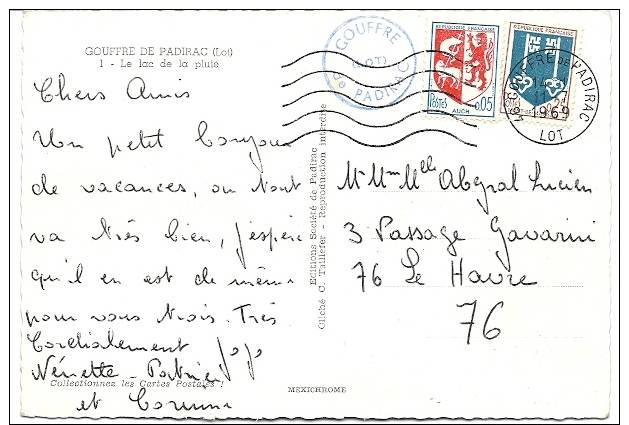 GOUFFRE DE PADIRAC (Lot)
1 - Le lac de la pluie
GOUFFRE
(LOT)
de PADIRAC
REPUBLIQUE FRANCAISE
POSTES
0,05
AUCH
REPUBLIQUE FRANCAISE
46 GOUFFRE DE PADIRAC
14
1969
LOT
Chers Amis
Un petit bonjour
de vacances, ou tout
va très bien, j'espère
qu'il en est de même
pour vous trois. Très
Cordialement
Nénette - Jojo
Collectionnez les Cartes Postales !
et Corinne
Editions Société de Padirac
Cliché C. Taillefer - Reproduction interdite
M Mme Melle Abgral Lucien
3 Passage Gavarni
76 Le Havre
76
MEXICHROME